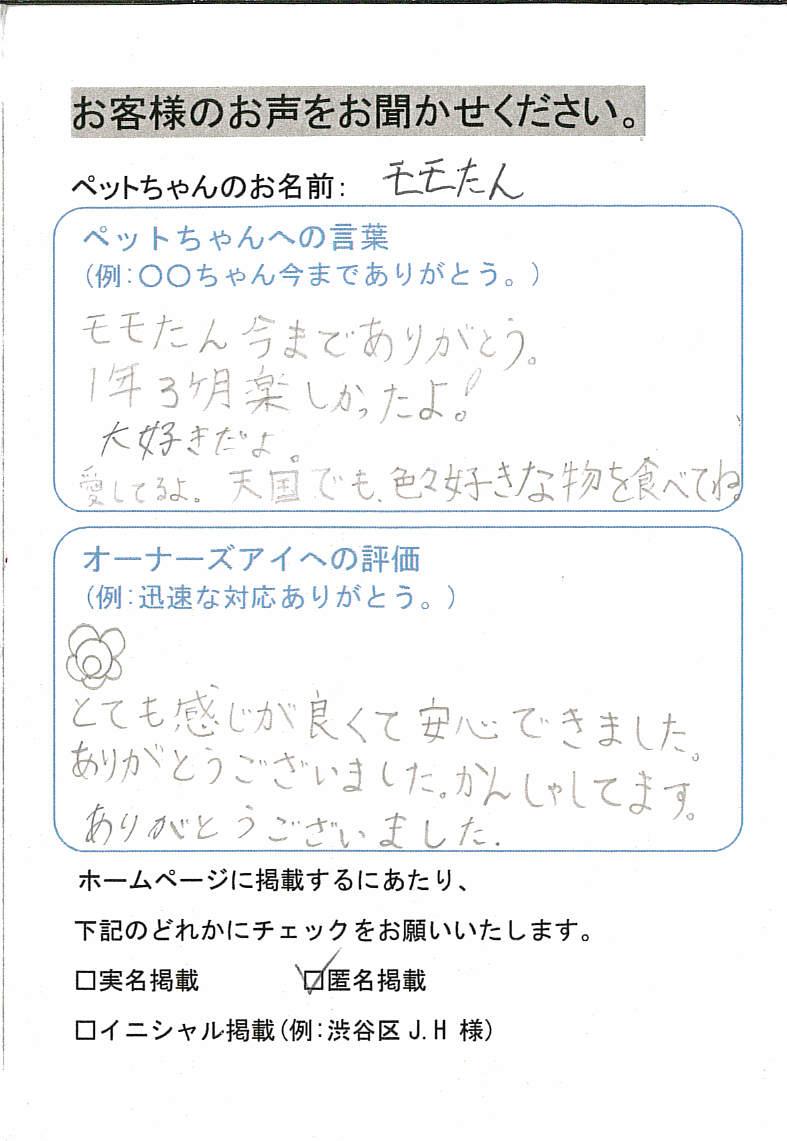 お客様のお声をお聞かせください。
ペットちゃんのお名前: モモたん
ペットちゃんへの言葉
(例:〇〇ちゃん今までありがとう。)
モモたん今までありがとう。
1年3ケ月楽しかったよ!
大好きだよ。
愛してるよ。天国でも、色々好きな物を食べてね。
オーナーズアイへの評価
(例:迅速な対応ありがとう。)
とても感じが良くて安心できました。
ありがとうございました。かんしゃしてます。
ありがとうございました.
ホームページに掲載するにあたり、
下記のどれかにチェックをお願いいたします。
□実名掲載 ☑匿名掲載
□イニシャル掲載(例:渋谷区 J.H 様)